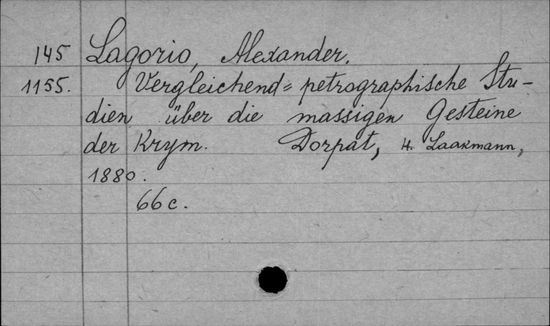 145 Lagorio, Alexander.
1155. Vergleichend=petrographische Stu-
dien über die massigen Gesteine
der Krym. Dorpat, H. Laakmann,
1880.
66 c.